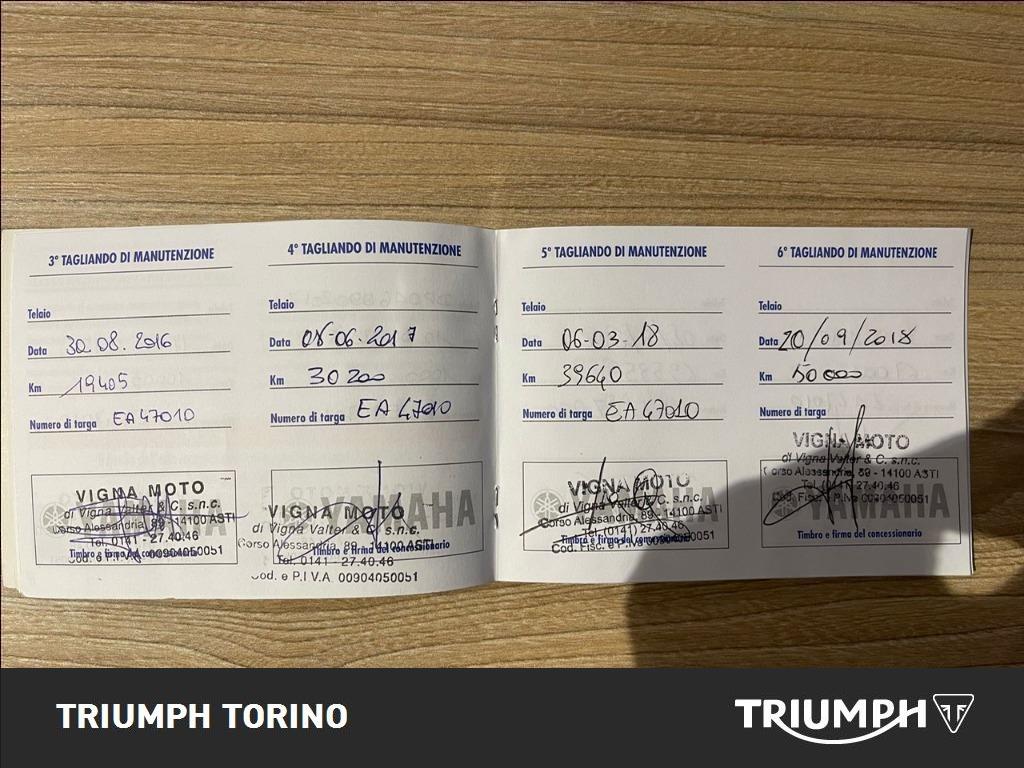 3° TAGLIANDO DI MANUTENZIONE
Telaio
Data 30.08.2016
Km 19405
Numero di targa EA47010
VIGNA MOTO
di Vigna Valter & C. s.n.c.
Corso Alessandria, 89 - 14100 ASTI
Tel. 0141 - 27.40.46
Timbro e firma del concessionario
Cod. e P.I.VA 00904050051
4° TAGLIANDO DI MANUTENZIONE
Telaio
Data 08-06.2017
Km 30200
Numero di targa EA47010
YAMAHA
VIGNA MOTO
di Vigna Valter & C. s.n.c.
Corso Alessandria, 89 - 14100 ASTI
Timbro e firma del concessionario
Tel. 0141 - 27.40.46
Cod. e P.I.V.A. 00904050051
5° TAGLIANDO DI MANUTENZIONE
Telaio
Data 06-03-18
Km 39640
Numero di targa EA47010
YAMAHA
VIGNA MOTO
di Vigna Valter & C. s.n.c.
Corso Alessandria, 89 - 14100 ASTI
Tel. (0141) 27.40.46
Timbro e firma del concessionario
Cod. Fisc. e P.Iva 00904050051
6° TAGLIANDO DI MANUTENZIONE
Telaio
Data 20/09/2018
Km 50000
Numero di targa
VIGNA MOTO
di Vigna Valter & C. s.n.c.
Corso Alessandria, 89 - 14100 ASTI
Tel. (0141) 27.40.46
Cod. Fisc. e P.Iva 00904050051
YAMAHA
Timbro e firma del concessionario
TRIUMPH TORINO
TRIUMPH